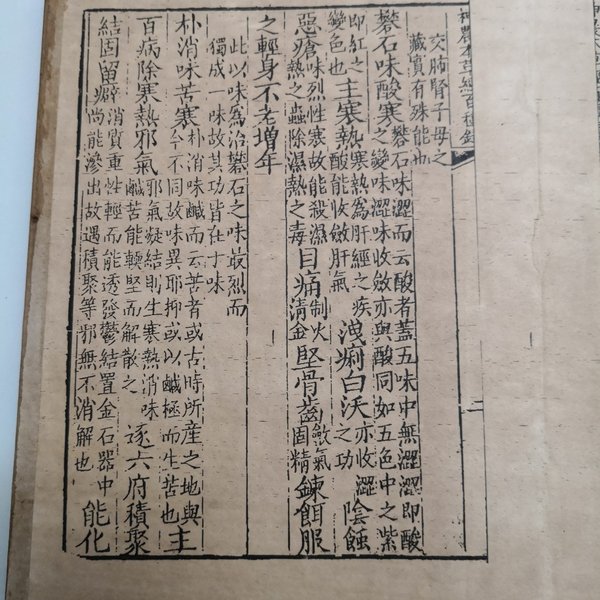 神農本草經百種錄
交肺腎子母之
藏實有殊能也
礬石味酸寒礬石味澀而云酸者蓋五味中無澀澀即酸之變味澀味收斂亦與酸同如五色中之紫
即紅之變色也主寒熱寒熱為肝經之疾酸能收斂肝氣洩痢白沃亦收澀之功陰蝕
惡瘡味烈性寒故能殺濕熱之蟲除濕熱之毒目痛制火清金堅骨齒斂氣固精鍊餌服
之輕身不老增年
此以味為治礬石之味最烈而
獨成一味故其功皆在于味
朴消味苦寒朴消味鹹而云苦者或古時所產之地與今不同故味異耶抑或以鹹極而生苦也主
百病除寒熱邪氣邪氣凝結則生寒熱消味鹹苦能輭堅而解散之逐六府積聚
結固留癖消質重性輕而能透發鬱結置金石器中尚能滲出故遇積聚等邪無不消解也能化